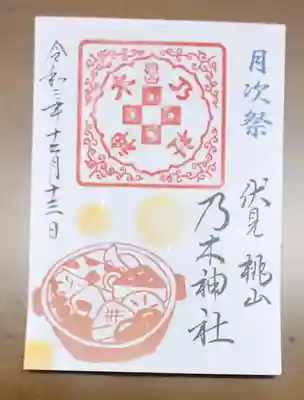 月次祭
伏見 桃山
乃木神社
令和二年十二月十三日